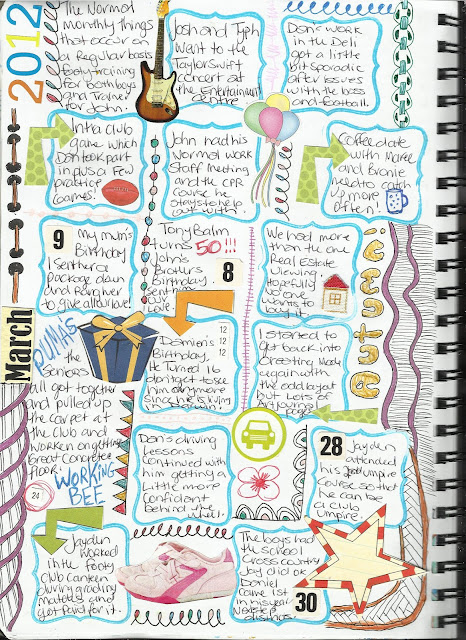 2012
The Normal
monthly things
that occur on
a Regular basis
footy training
for both boys
and Trainer
for John.
Josh and Typh
Went to the
Taylor Swift
concert at
the Entertainment
Centre
Don's work
in the Deli
got a little
bit sporadic
after issues
with the boss
and football.
Intra Club
game which
Don took part
in plus a Few
practice
Games!
John had his
Normal work
Staff Meeting
and the CPR
course he
stays to help
out with.
Coffee date
with Maree
and Bronie
need to catch
up more
often!
9 My mum's
Birthday
sent her a
package down
and Rang her
to give all our love!
Tony Balm
turns 50!!!
John's
Brothers
Birthday.
8
sent him
our
love
We had more
than the one
Real Estate
Viewing.
Hopefully
one
wants to
buy it.
icmutua
March
PUMAS
the
Seniors
all got together
and pulled up
the carpet at
the Club and
worked on getting
Great Concrete
floor.
WORKING
BEE
24
Damien's
Birthday,
He Turned 16
don't get to see
him anymore
since he is living
in
12
12
12
I started to
get back into
Creating Made
again with
the odd layout
but Lots of
Art Journal
pages
Don's driving
Lessons
continued with
him getting a
Little more
Confidant
behind the
wheel.
28 Jayden
attended
his Goal Umpire
Course so that
he can be
a Club
Umpire.
Jayden
worked
in the footy
club canteen
during grading
matches and
got Paid for it.
The boys had
the school
Cross country
Jay did ok
Daniel
came 1st
in his year
30